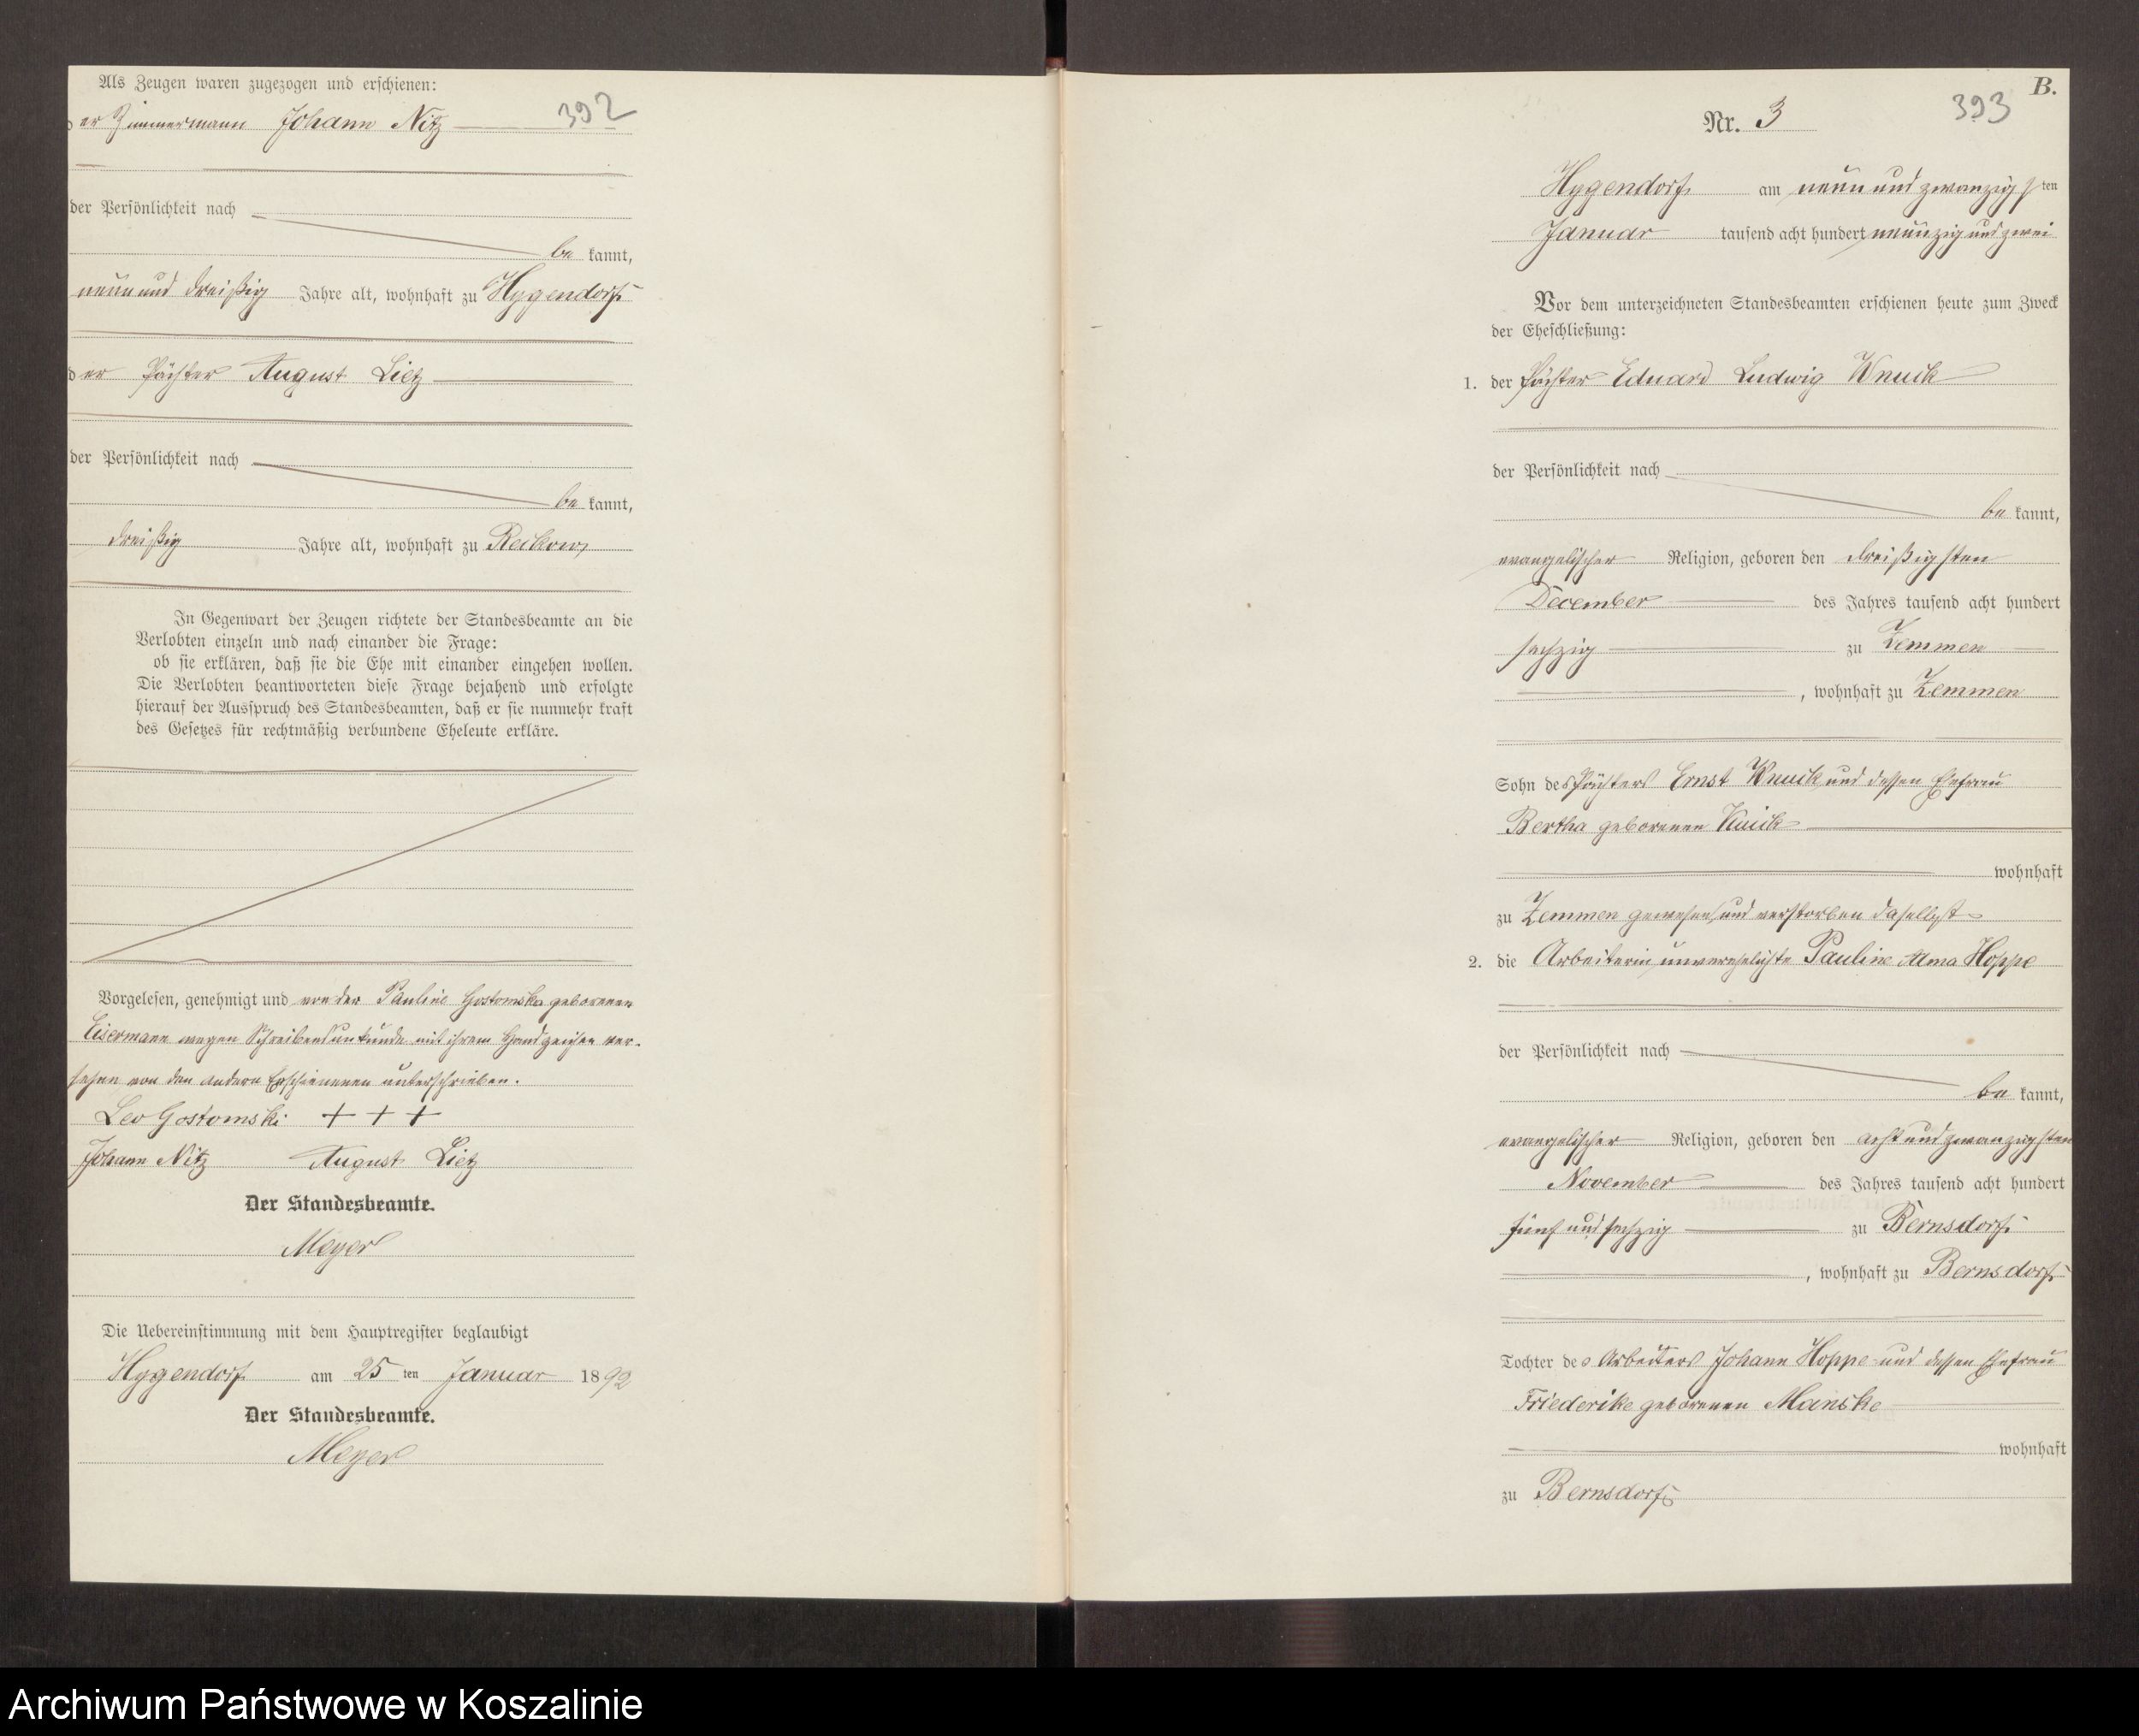 Als Zeugen waren zugezogen und erschienen:
392
der Zimmermann Johann Nitz
der Persönlichkeit nach
be kannt,
neun und dreißig Jahre alt, wohnhaft zu Hygendorf
der Pächter August Lietz
der Persönlichkeit nach
be kannt,
dreißig Jahre alt, wohnhaft zu Reckow
In Gegenwart der Zeugen richtete der Standesbeamte an die
Verlobten einzeln und nach einander die Frage:
ob sie erklären, daß sie die Ehe mit einander eingehen wollen.
Die Verlobten beantworteten diese Frage bejahend und erfolgte
hierauf der Ausspruch des Standesbeamten, daß er sie nunmehr kraft
des Gesetzes für rechtmäßig verbundene Eheleute erkläre.
Vorgelesen, genehmigt und von der Pauline Gostomska geborenen
Eisermann wegen Schreibensunkunde mit ihrem Handzeichen ver-
sehen von den andern Erschienenen unterschrieben.
Leo Gostomski + + +
Johann Nitz August Lietz
Der Standesbeamte.
Meyer
Die Uebereinstimmung mit dem Hauptregister beglaubigt
Hygendorf am 25 ten Januar 1892
Der Standesbeamte.
Meyer
B.
393
Nr. 3
Hygendorf am neun und zwanzigsten
Januar tausend acht hundert neunzig und zwei
Vor dem unterzeichneten Standesbeamten erschienen heute zum Zweck
der Eheschließung:
1. der Pächter Eduard Ludwig Wnuck
der Persönlichkeit nach
be kannt,
evangelischer Religion, geboren den dreißigsten
December des Jahres tausend acht hundert
sechzig zu Zemmen
, wohnhaft zu Zemmen
Sohn des Pächters Ernst Wnuck und dessen Ehefrau
Bertha geborenen
wohnhaft
zu Zemmen gewesen und verstorben daselbst
2. die Arbeiterin, unverehelichte Pauline Alma Hoppe
der Persönlichkeit nach
be kannt,
evangelischer Religion, geboren den acht und zwanzigsten
November des Jahres tausend acht hundert
fünf und sechzig zu Bernsdorf
, wohnhaft zu Bernsdorf
Tochter des Arbeiters Johann Hoppe und dessen Ehefrau
Friederike geborenen Manske
wohnhaft
zu Bernsdorf
Archiwum Państwowe w Koszalinie